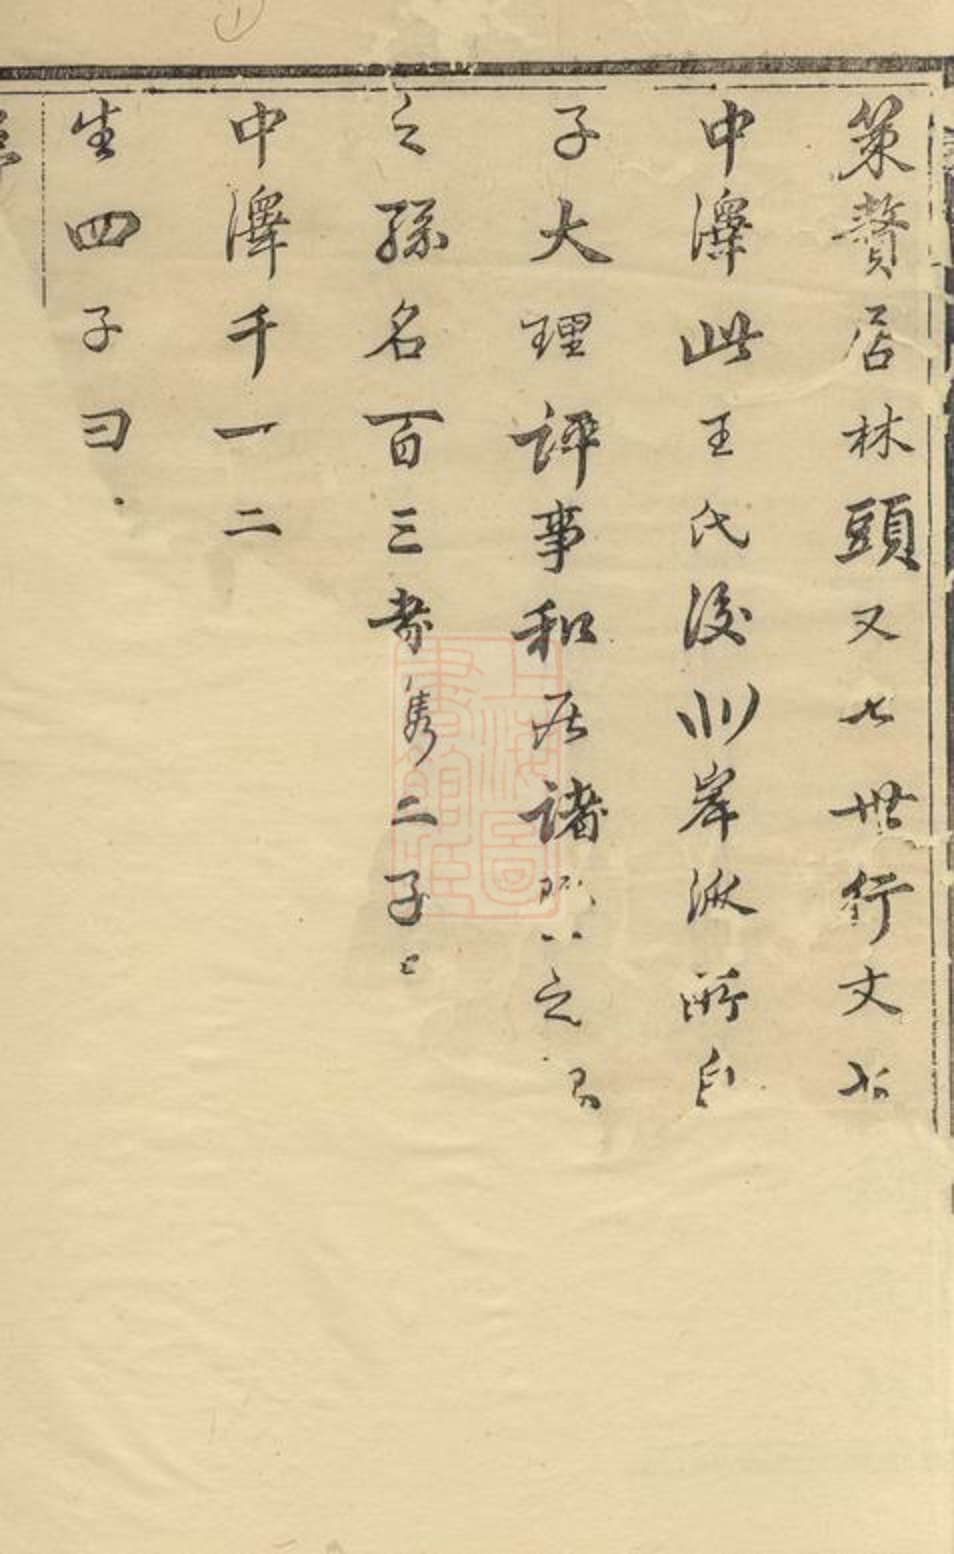 策贅居林頭又七世行文
中澤此王氏後川岸派所自
子大理評事和居諸之
之孫名百三者雋二子
中澤千一二
生四子曰